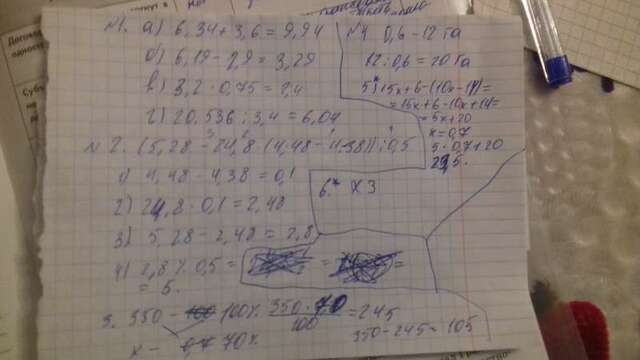 N1. а) 6,34 + 3,6 = 9,94
б) 6,19 - 2,9 = 3,29
в) 3,2 · 0,75 = 2,4
г) 20,536 : 3,4 = 6,04
N2. (5,28 - 24,8 (4,48 - 4,38)) : 0,5
1) 4,48 - 4,38 = 0,1
2) 24,8 · 0,1 = 2,48
3) 5,28 - 2,48 = 2,8
4) 2,8 : 0,5 =
= 5.
3. 350 - 100% 350 · 70 / 100 = 245
x - 70% 350 - 245 = 105
N4 0,6 - 12 га
12 : 0,6 = 20 га
5)* 15x + 6 - (10x - 14) =
= 15x + 6 - 10x + 14 =
= 5x + 20
x = 0,7
5 · 0,7 + 20
6.* X З